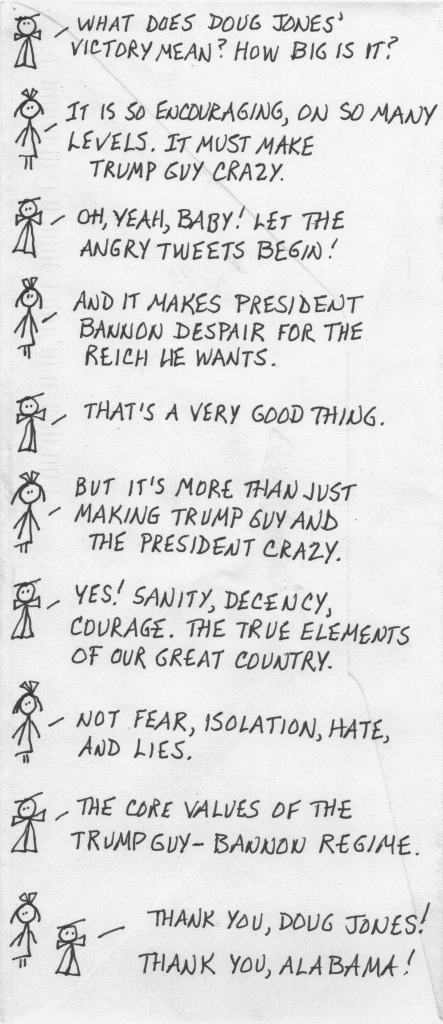 WHAT DOES DOUG JONES'
VICTORY MEAN? HOW BIG IS IT?
IT IS SO ENCOURAGING, ON SO MANY
LEVELS. IT MUST MAKE
TRUMP GUY CRAZY.
OH, YEAH, BABY! LET THE
ANGRY TWEETS BEGIN!
AND IT MAKES PRESIDENT
BANNON DESPAIR FOR THE
REICH HE WANTS.
THAT'S A VERY GOOD THING.
BUT IT'S MORE THAN JUST
MAKING TRUMP GUY AND
THE PRESIDENT CRAZY.
YES! SANITY, DECENCY,
COURAGE. THE TRUE ELEMENTS
OF OUR GREAT COUNTRY.
NOT FEAR, ISOLATION, HATE,
AND LIES.
THE CORE VALUES OF THE
TRUMP GUY-BANNON REGIME.
THANK YOU, DOUG JONES!
THANK YOU, ALABAMA!